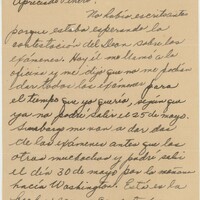 Apreciado
No había escrito antes
porque estaba esperando la
contestación del Decano sobre los
exámenes. Hoy él me llamó a la
oficina y me dijo que no me podían
dar todos los exámenes para
el tiempo que yo quería, según que
ya no podré salir el 25 de mayo.
Sin embargo me van a dar dos
de los exámenes antes que los
otros muchachos y podré salir
el día 30 de mayo por la mañana
hacia Washington. Esta es la